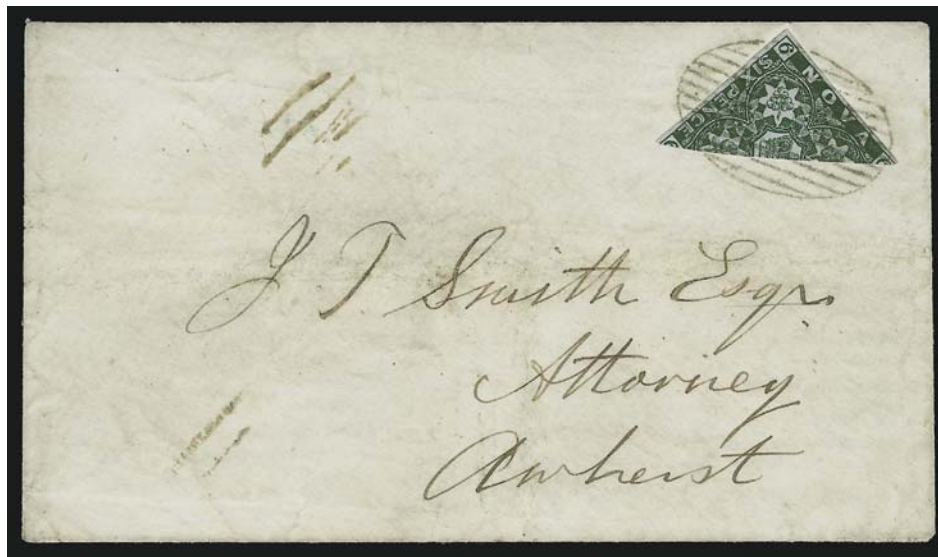 6
SIX PENCE
NOVA
J T Smith Esqr.
Attorney
Amherst